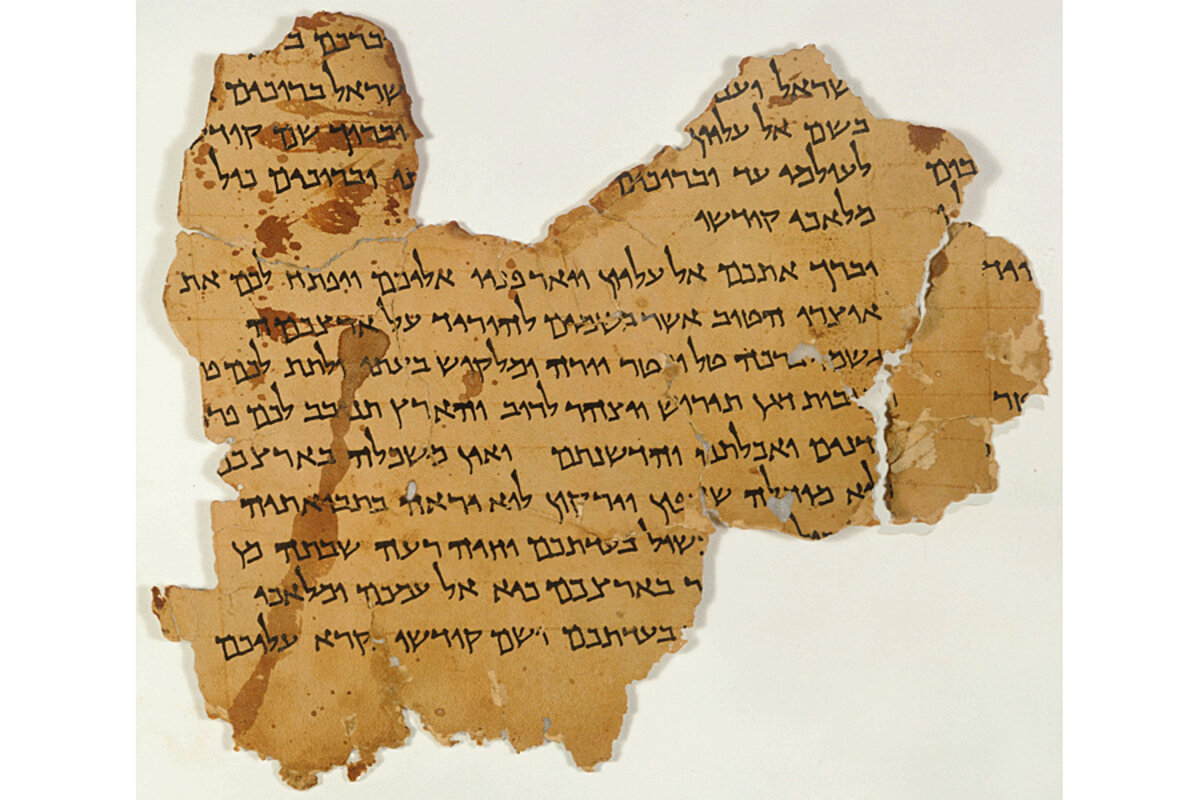 ברכם ב
שראל וענ שראל ברוכים
בשם אל עליון וברוך שם קוד
לעולמי עד וברוכים וברוכים כול
מלאכי קודשו
דויד יברך אתכם אל עליון ויאר פניו אליכם ויפתח לכם את
אוצרו הטוב אשר בשמים להוריד על ארצכמה
גשמי ברכה טל ומטר יורה ומלקוש בעתו ולתת לכם
תנובות דגן תירוש ויצהר לרוב והארץ תנובב לכם פר
דנים ואכלתם והדשנתם ואין משכלה בארצכם
ולא מוחלה שדפון וירקון לוא יראה בתבואתיה
שול בעדתכם וחיה רעה שבתה מן
ר בארצכם כיא אל עמכם ומלאכי
בעדתכם ושם קודשו נקרא עליכם